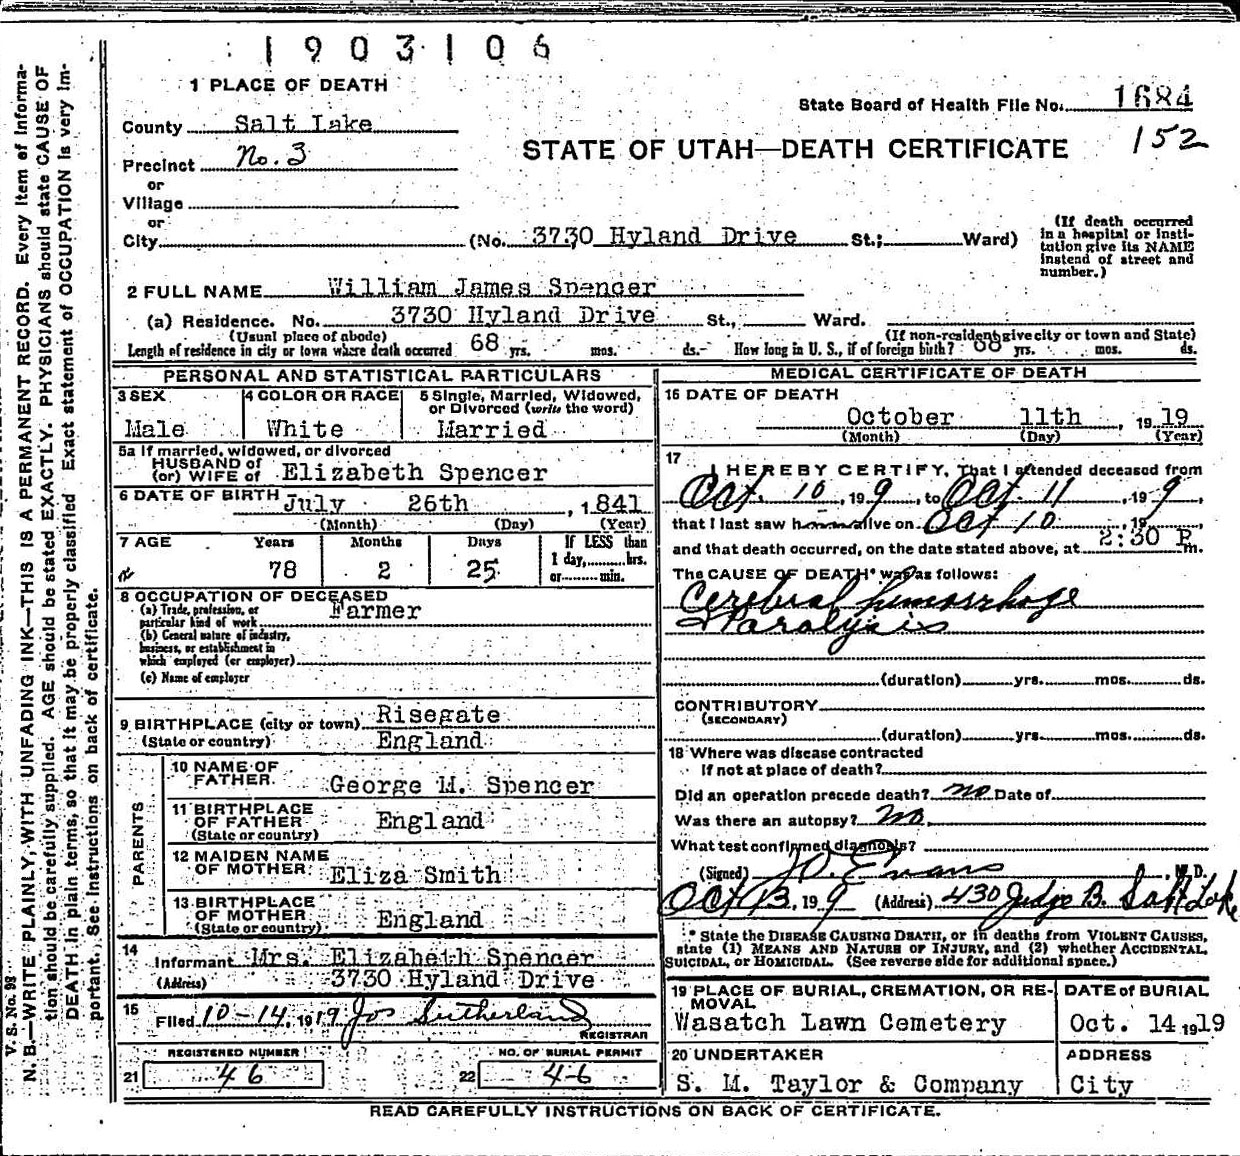 1903106
1 PLACE OF DEATH
State Board of Health File No. 1684
152
County Salt Lake
STATE OF UTAH—DEATH CERTIFICATE
Precinct No. 3
or
Village
or
City (No. 3730 Hyland Drive St.; Ward)
(If death occurred
in a hospital or insti-
tution give its NAME
instead of street and
number.)
2 FULL NAME William James Spencer
(a) Residence. No. 3730 Hyland Drive St., Ward.
(Usual place of abode) (If non-resident give city or town and State)
Length of residence in city or town where death occurred 68 yrs. mos. ds. How long in U. S., if of foreign birth? 68 yrs. mos. ds.
PERSONAL AND STATISTICAL PARTICULARS
3 SEX
Male
4 COLOR OR RACE
White
5 Single, Married, Widowed,
or Divorced (write the word)
Married
5a If married, widowed, or divorced
HUSBAND of
(or) WIFE of Elizabeth Spencer
6 DATE OF BIRTH July 26th, 1841
(Month) (Day) (Year)
7 AGE Years Months Days If LESS than
1 day, hrs.
78 2 25 or min.
8 OCCUPATION OF DECEASED
(a) Trade, profession, or
particular kind of work Farmer
(b) General nature of industry,
business, or establishment in
which employed (or employer)
(c) Name of employer
9 BIRTHPLACE (city or town) Risegate
(State or country) England
PARENTS
10 NAME OF
FATHER George M. Spencer
11 BIRTHPLACE
OF FATHER England
(State or country)
12 MAIDEN NAME
OF MOTHER Eliza Smith
13 BIRTHPLACE
OF MOTHER England
(State or country)
14
Informant Mrs. Elizabeth Spencer
(Address) 3730 Hyland Drive
15
Filed 10-14, 1919 Jos Sutherland
REGISTRAR
REGISTERED NUMBER
21 46
NO. OF BURIAL PERMIT
22 46
MEDICAL CERTIFICATE OF DEATH
16 DATE OF DEATH
October 11th, 1919
(Month) (Day) (Year)
17
I HEREBY CERTIFY, That I attended deceased from
Oct. 10, 19 9, to Oct. 11, 19 9,
that I last saw h alive on Oct 10, 19,
and that death occurred, on the date stated above, at 2:30 P m.
The CAUSE OF DEATH* was as follows:
Cerebral hemorrhage
Paralysis
(duration) yrs. mos. ds.
CONTRIBUTORY
(SECONDARY)
(duration) yrs. mos. ds.
18 Where was disease contracted
If not at place of death?
Did an operation precede death? no Date of
Was there an autopsy? no.
What test confirmed diagnosis?
(Signed) Evans, M. D.
Oct 13, 19 9 (Address) 430 Judge B. Salt Lake
* State the DISEASE CAUSING DEATH, or in deaths from VIOLENT CAUSES,
state (1) MEANS AND NATURE OF INJURY, and (2) whether ACCIDENTAL,
SUICIDAL, or HOMICIDAL. (See reverse side for additional space.)
19 PLACE OF BURIAL, CREMATION, OR RE-
MOVAL
Wasatch Lawn Cemetery
DATE of BURIAL
Oct. 14 1919
20 UNDERTAKER
S. M. Taylor & Company
ADDRESS
City
READ CAREFULLY INSTRUCTIONS ON BACK OF CERTIFICATE.
V. S. No. 98
N. B.—WRITE PLAINLY, WITH UNFADING INK—THIS IS A PERMANENT RECORD. Every item of informa-
tion should be carefully supplied. AGE should be stated EXACTLY. PHYSICIANS should state CAUSE OF
DEATH in plain terms, so that it may be properly classified. Exact statement of OCCUPATION is very im-
portant. See instructions on back of certificate.